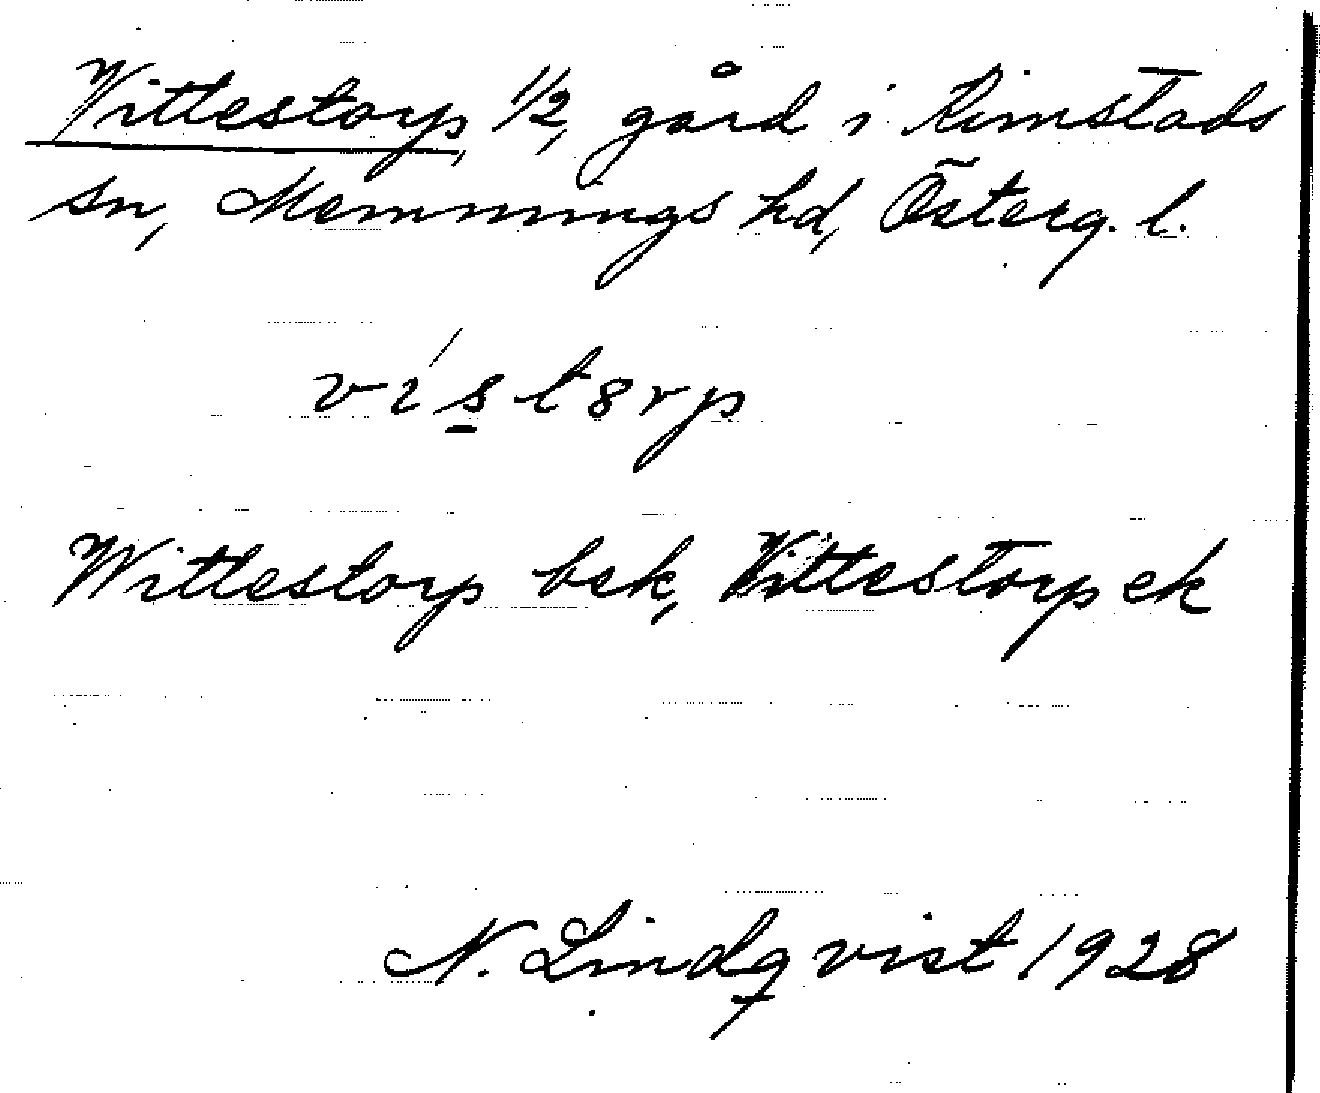 Vittestorp, 1/2, gård i Rimstads
sn, Memmings hd, Österg. l.
vi´st8rp
Wittestorp bek, Vittestorp ek
N. Lindqvist 1928